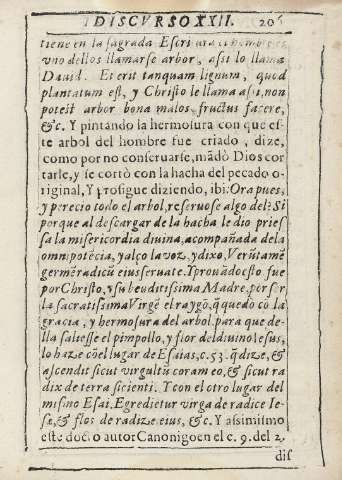 IDISCVRSO XXII. 20
tiene en la sagrada Escri
vno dellos llamarse arbor, assi lo llama
Dauid. Et erit tanquam lignum, quod
plantatum est, y Christo le llama assi, non
potest arbor bona malos fructus facere,
&c. Y pintando la hermosura con que es-
te arbol del hombre fue criado, dize,
como por no conseruarse, mãdò Dios cor
tarle, y se cortò con la hacha del pecado o-
riginal, Y prosigue diziendo, ibi: Ora pues,
y perecio todo el arbol, reseruose algo del? Si
porque al descargar de la hacha le dio pries
sa la misericordia diuina, acompañada dela
omnipotẽcia, y alço la voz, y dixo, Verũtamẽ
germẽ radicũ eius seruate. Y prouãdo esto fue
por Christo, y su benditissima Madre, por ser
la sacratissima Virgẽ el raygõ, q̃ quedo cõ la
gracia, y hermosura del arbol, para que de-
lla saliesse el pimpollo, y flor del diuino Iesus,
lo haze cõ el lugar de Esaias, c. 53. q̃ dize, &
ascendit sicut virgultũ coram eo, & sicut ra
dix de terra sicienti. Y con el otro lugar del
mismo Esai. Egredietur virga de radice Ie-
se, & flos de radize eius, &c. Y assimismo
este docto autor Canonigo en el c. 9. del 2.
dis